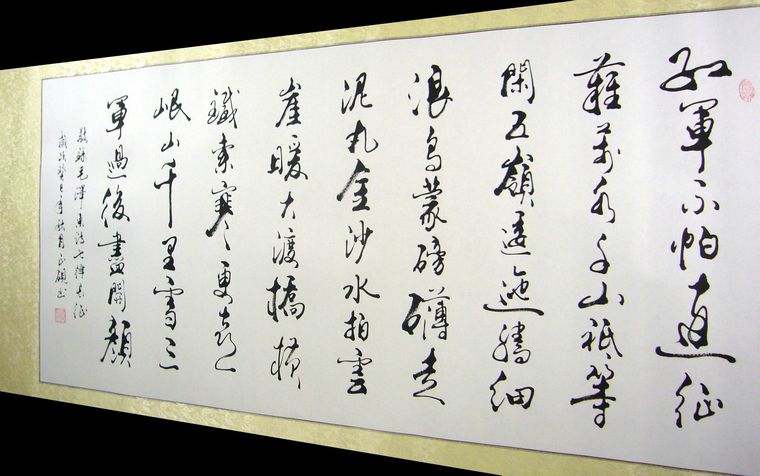 紅軍不怕遠征
難萬水千山祇等
閑五嶺逶迤騰細
浪烏蒙磅礴走
泥丸金沙水拍雲
崖暖大渡橋橫
鐵索寒更喜
岷山千里雪三
軍過後盡開顏
敬錄毛澤東詩七律長征
歲次癸巳年秋月